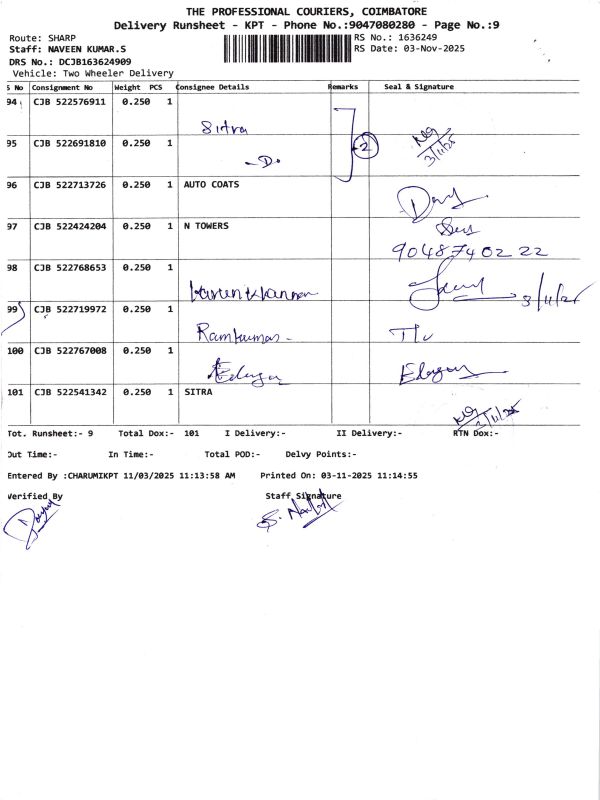 THE PROFESSIONAL COURIERS, COIMBATORE
Delivery Runsheet - KPT - Phone No.:9047080280 - Page No.:9
Route: SHARP
RS No.: 1636249
Staff: NAVEEN KUMAR.S
RS Date: 03-Nov-2025
DRS No.: DCJB163624909
Vehicle: Two Wheeler Delivery
S No Consignment No Weight PCS Consignee Details Remarks Seal & Signature
94 CJB 522576911 0.250 1 Sitra
3/11/25
95 CJB 522691810 0.250 1 -D- 2
96 CJB 522713726 0.250 1 AUTO COATS
97 CJB 522424204 0.250 1 N TOWERS
9048740222
98 CJB 522768653 0.250 1 3/11/25
99 CJB 522719972 0.250 1 Ramkumar
100 CJB 522767008 0.250 1
101 CJB 522541342 0.250 1 SITRA
Tot. Runsheet:- 9 Total Dox:- 101 I Delivery:- II Delivery:- RTN Dox:-
Out Time:- In Time:- Total POD:- Delvy Points:-
Entered By :CHARUMIKPT 11/03/2025 11:13:58 AM Printed On: 03-11-2025 11:14:55
Verified By Staff Signature